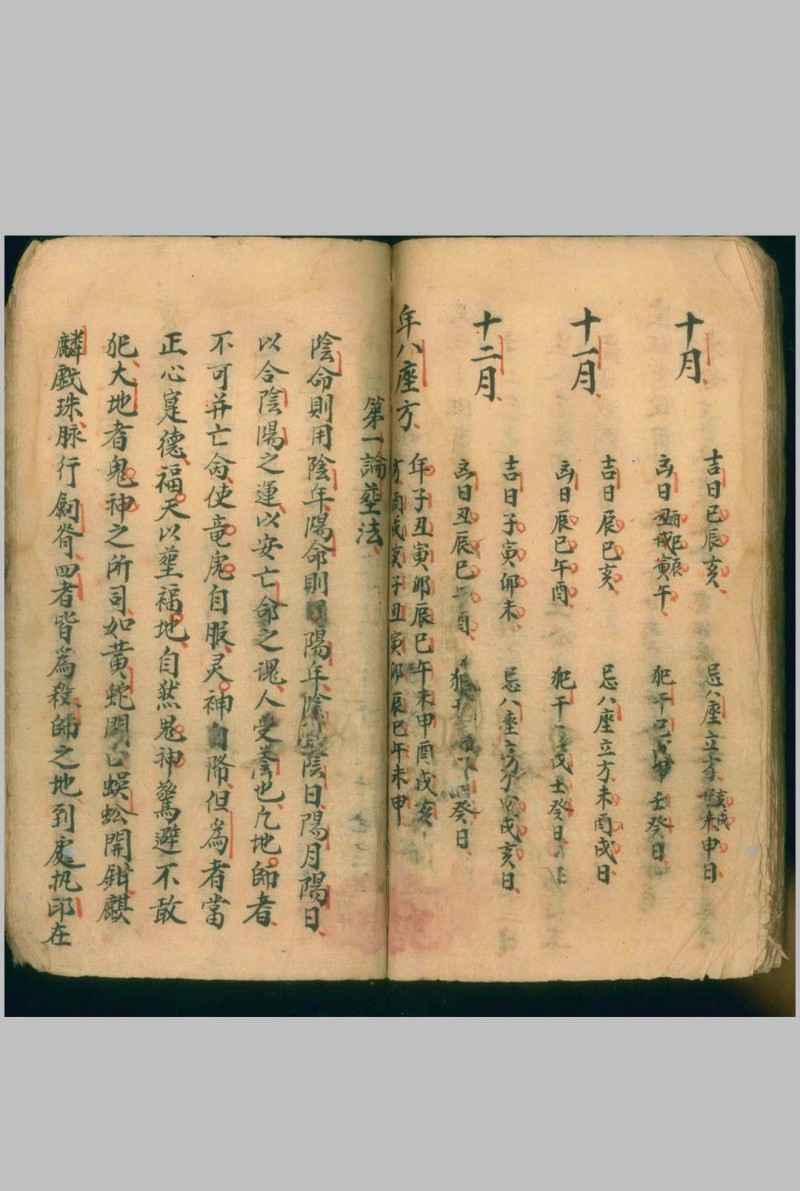 十月
吉日巳辰亥
忌八座立方亥戌未申日
凶日丑戌寅午
犯干己 壬癸日
十一月
吉日辰巳亥
忌八座立方未酉戌日
凶日辰巳午酉
犯干 戊壬癸日
十二月
吉日子寅卯未
忌八座 戌亥日
凶日丑辰巳午酉
犯 癸日
年八座方
年子丑寅卯辰巳午未申酉戌亥
方酉戌亥子丑寅卯辰巳午未申
第一論葬法
陰命則用陰年陽命則 陽年陰 陰日陽月陽日
以合陰陽之運以安亡命之魂人受蔭也凢地師者
不可并亡命使竜虎自服灵神自降但為者當
正心寔德福天以葬福地自然鬼神驚避不敢
犯大地者鬼神之所司如黄蛇開口蜈蚣開鉗麒
麟戯珠脉行劍脊四者皆為殺師之地到處执印在